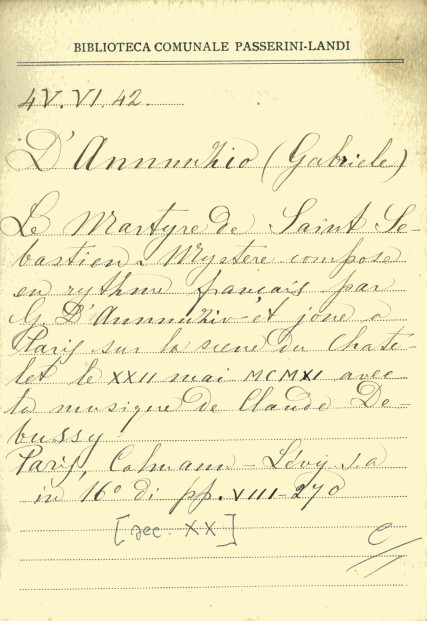 BIBLIOTECA COMUNALE PASSERINI-LANDI
4V.VI.42.
D'Annunzio (Gabriele)
Le Martyre de Saint Se-
bastien. Mystere compose
en rythme francais par
G. D'Annunzio et joue a
Paris sur la scene du Chate-
let le XXII mai MCMXI avec
la musique de Claude De-
bussy
Paris, Calmann-Lévy s.a
in 16° di pp. VIII-270
[sec. XX]